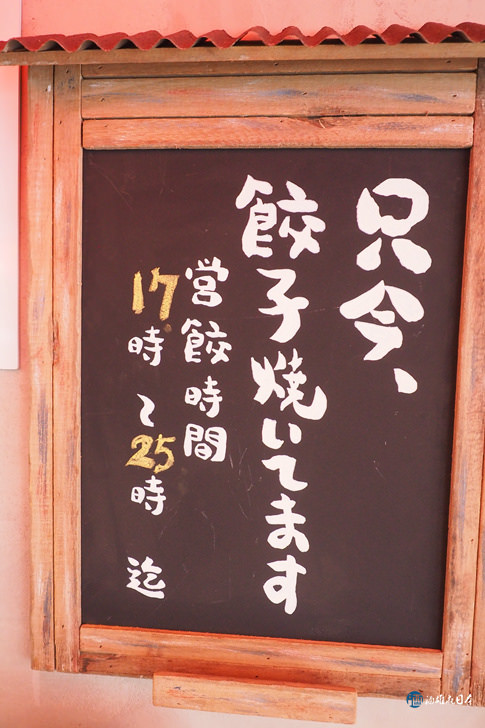 只今、
餃子焼いてます
営餃時間
17時〜25時 迄